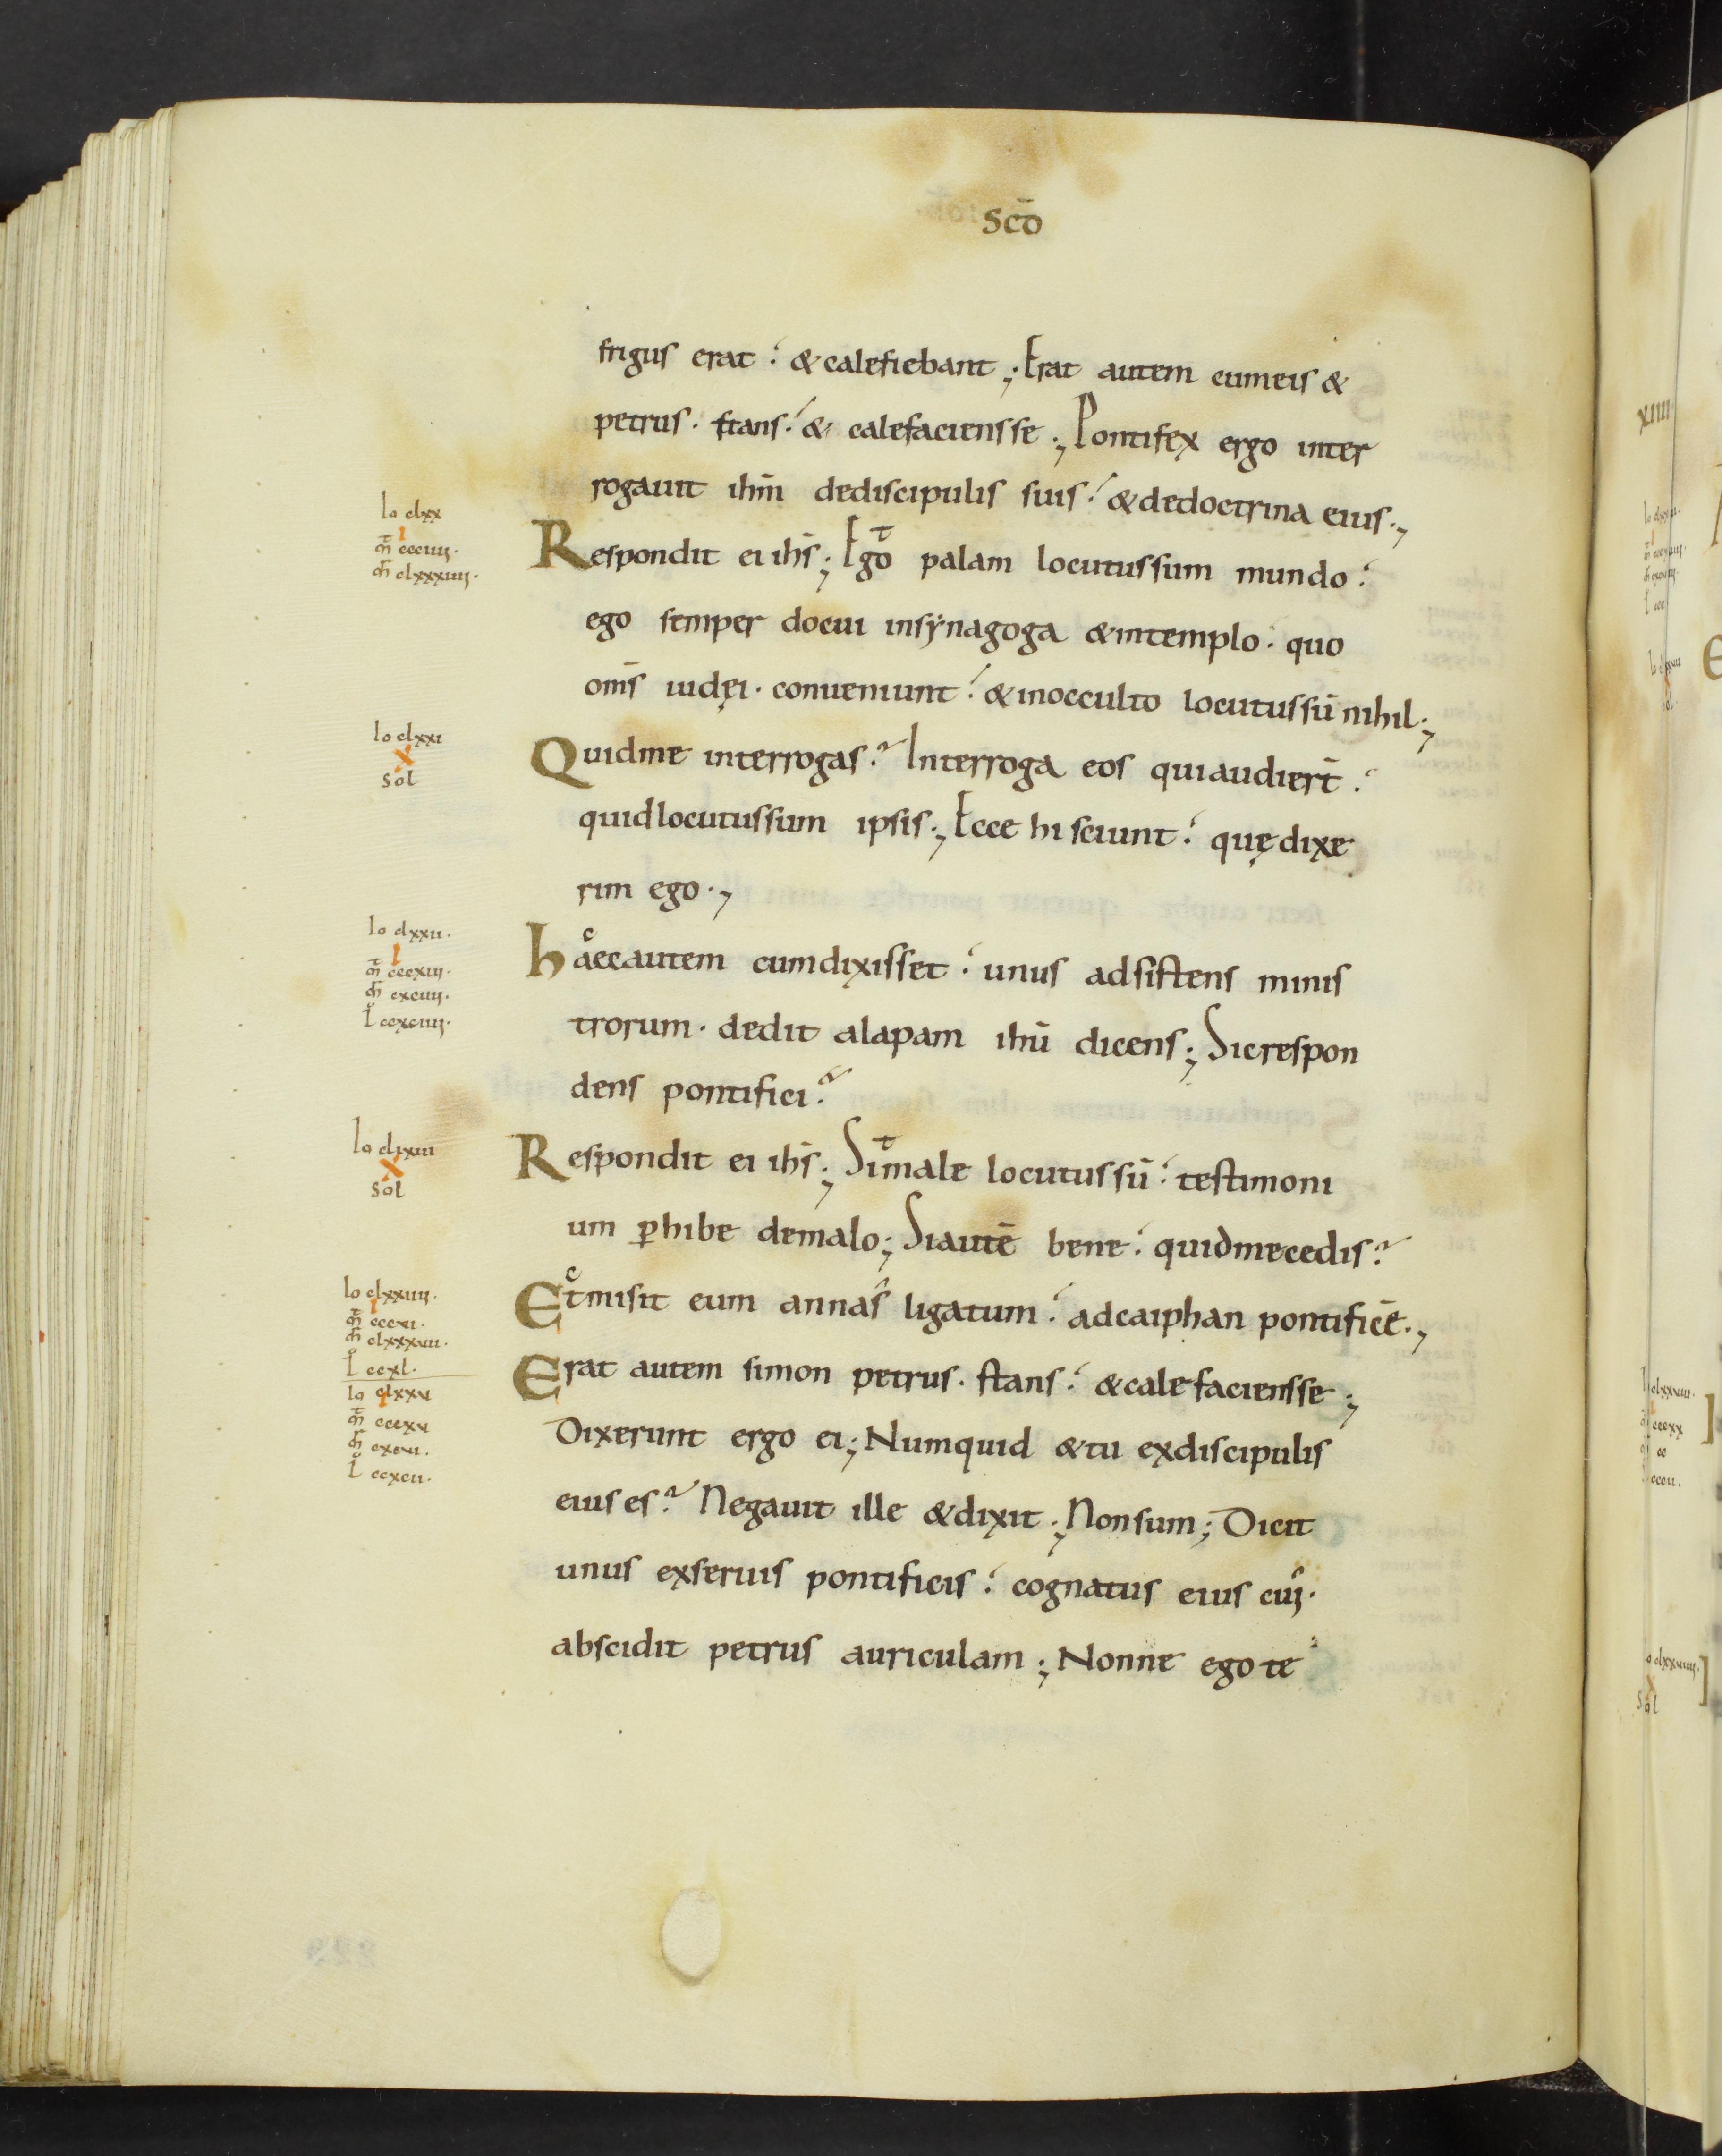 scō
frigus erat. & calefiebant; Erat autem cumeis &
petrus. stans. & calefaciensse; Pontifex ergo inter
rogauit ihm̄ dediscipulis suis. & dedoctrina eius.,
lo clxx
I
m̄ cccuii.
m̄ clxxxiiii.
Respondit ei ihs̄; Ego palam locutussum mundo.
ego semper docui insynagoga & intemplo. quo
om̄s iudęi. conueniunt. & inocculto locutussū nihil;
lo clxxi
X
sol
Quidme interrogas? Interroga eos quiaudier̄t.
quidlocutussum ipsis; Ecce hi sciunt. quędixe
rim ego.,
lo clxxii.
I
haecautem cumdixisset. unus adsistens minis
trorum. dedit alapam ihū dicens; Sicrespon
dens pontifici?
X
sol
Respondit ei ihs̄; Simale locutussū. testimoni
um ꝑhibe demalo; Siautē bene. quidmecedis?
lo clxxiiii.
I
l ccxl.
Etmisit eum annas ligatum. adcaiphan pontificē.,
lo clxxu
Erat autem simon petrus. stans. & calefaciensse;
Dixerunt ergo ei; Numquid & tu exdiscipulis
eius es? Negauit ille & dixit; Nonsum; Dicit
unus exseruis pontificis. cognatus eius cui.
abscidit petrus auriculam; Nonne ego te